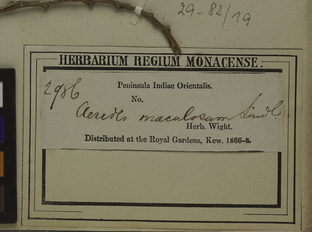 29-82/19
HERBARIUM REGIUM MONACENSE.
Peninsula Indiae Orientalis.
2986 No.
Aerides maculosum Lindl
Herb. Wight.
Distributed at the Royal Gardens, Kew. 1866-8.